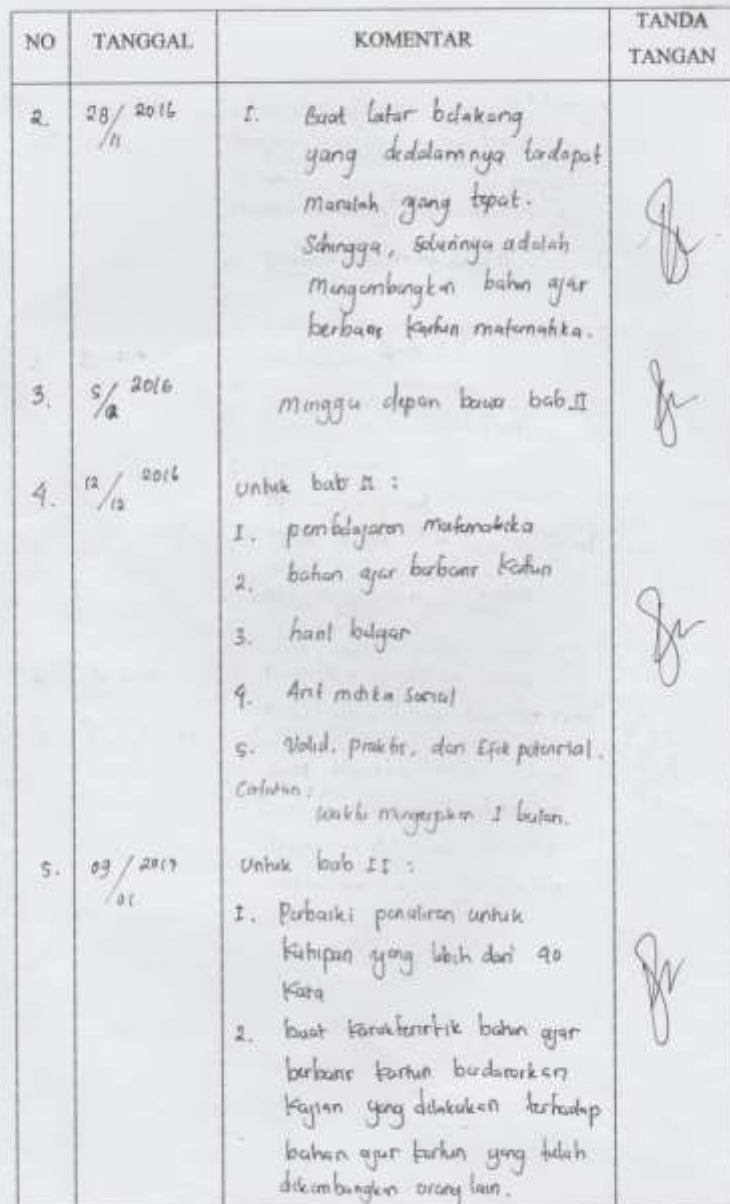 NO TANGGAL KOMENTAR TANDA TANGAN
2. 28/11 2016 1. Buat latar belakang
yang didalamnya terdapat
masalah yang tepat.
Sehingga, solusinya adalah
mengembangkan bahan ajar
berbasis kartun matematika.
3. 5/12 2016 minggu depan bawa bab II
4. 12/12 2016 Untuk bab II :
1. pembelajaran matematika
2. bahan ajar berbasis kartun
3. hasil belajar
4. Aritmatika sosial
5. Valid, praktis, dan Efek potensial.
Catatan :
waktu mengerjakan 1 bulan.
5. 09/01 2017 Untuk bab II :
1. Perbaiki penulisan untuk
kutipan yang lebih dari 40
kata
2. buat karakteristik bahan ajar
berbasis kartun berdasarkan
kajian yang dilakukan terhadap
bahan ajar kartun yang telah
dikembangkan orang lain.